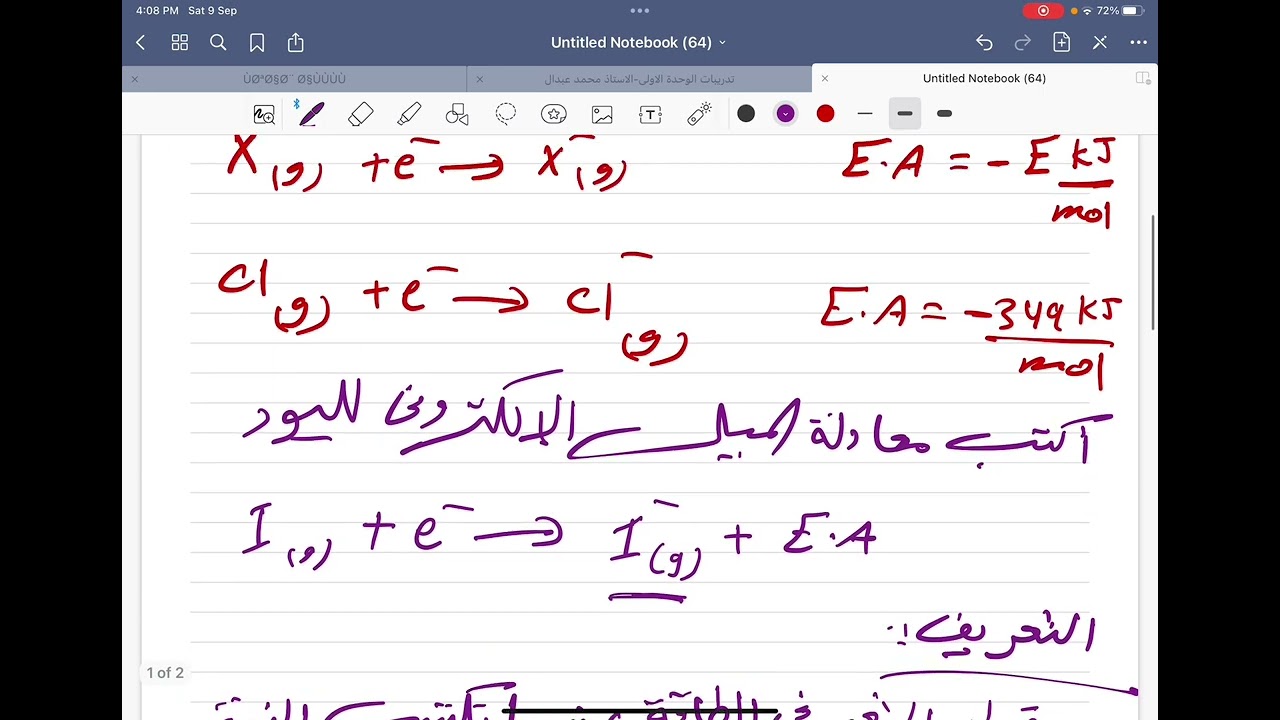 4:08 PM Sat 9 Sep 72%
Untitled Notebook (64)
ÙØªØ§Ø¨ Ø§ÙÙÙÙ تدريبات الوحدة الاولى-الاستاذ محمد عبدال Untitled Notebook (64)
X(g) + e⁻ → X⁻(g) E.A = - E kJ/mol
Cl(g) + e⁻ → Cl⁻(g) E.A = -349 kJ/mol
اكتب معادلة الميل الإلكتروني لليود
I(g) + e⁻ → I⁻(g) + E.A
التعريف:
1 of 2